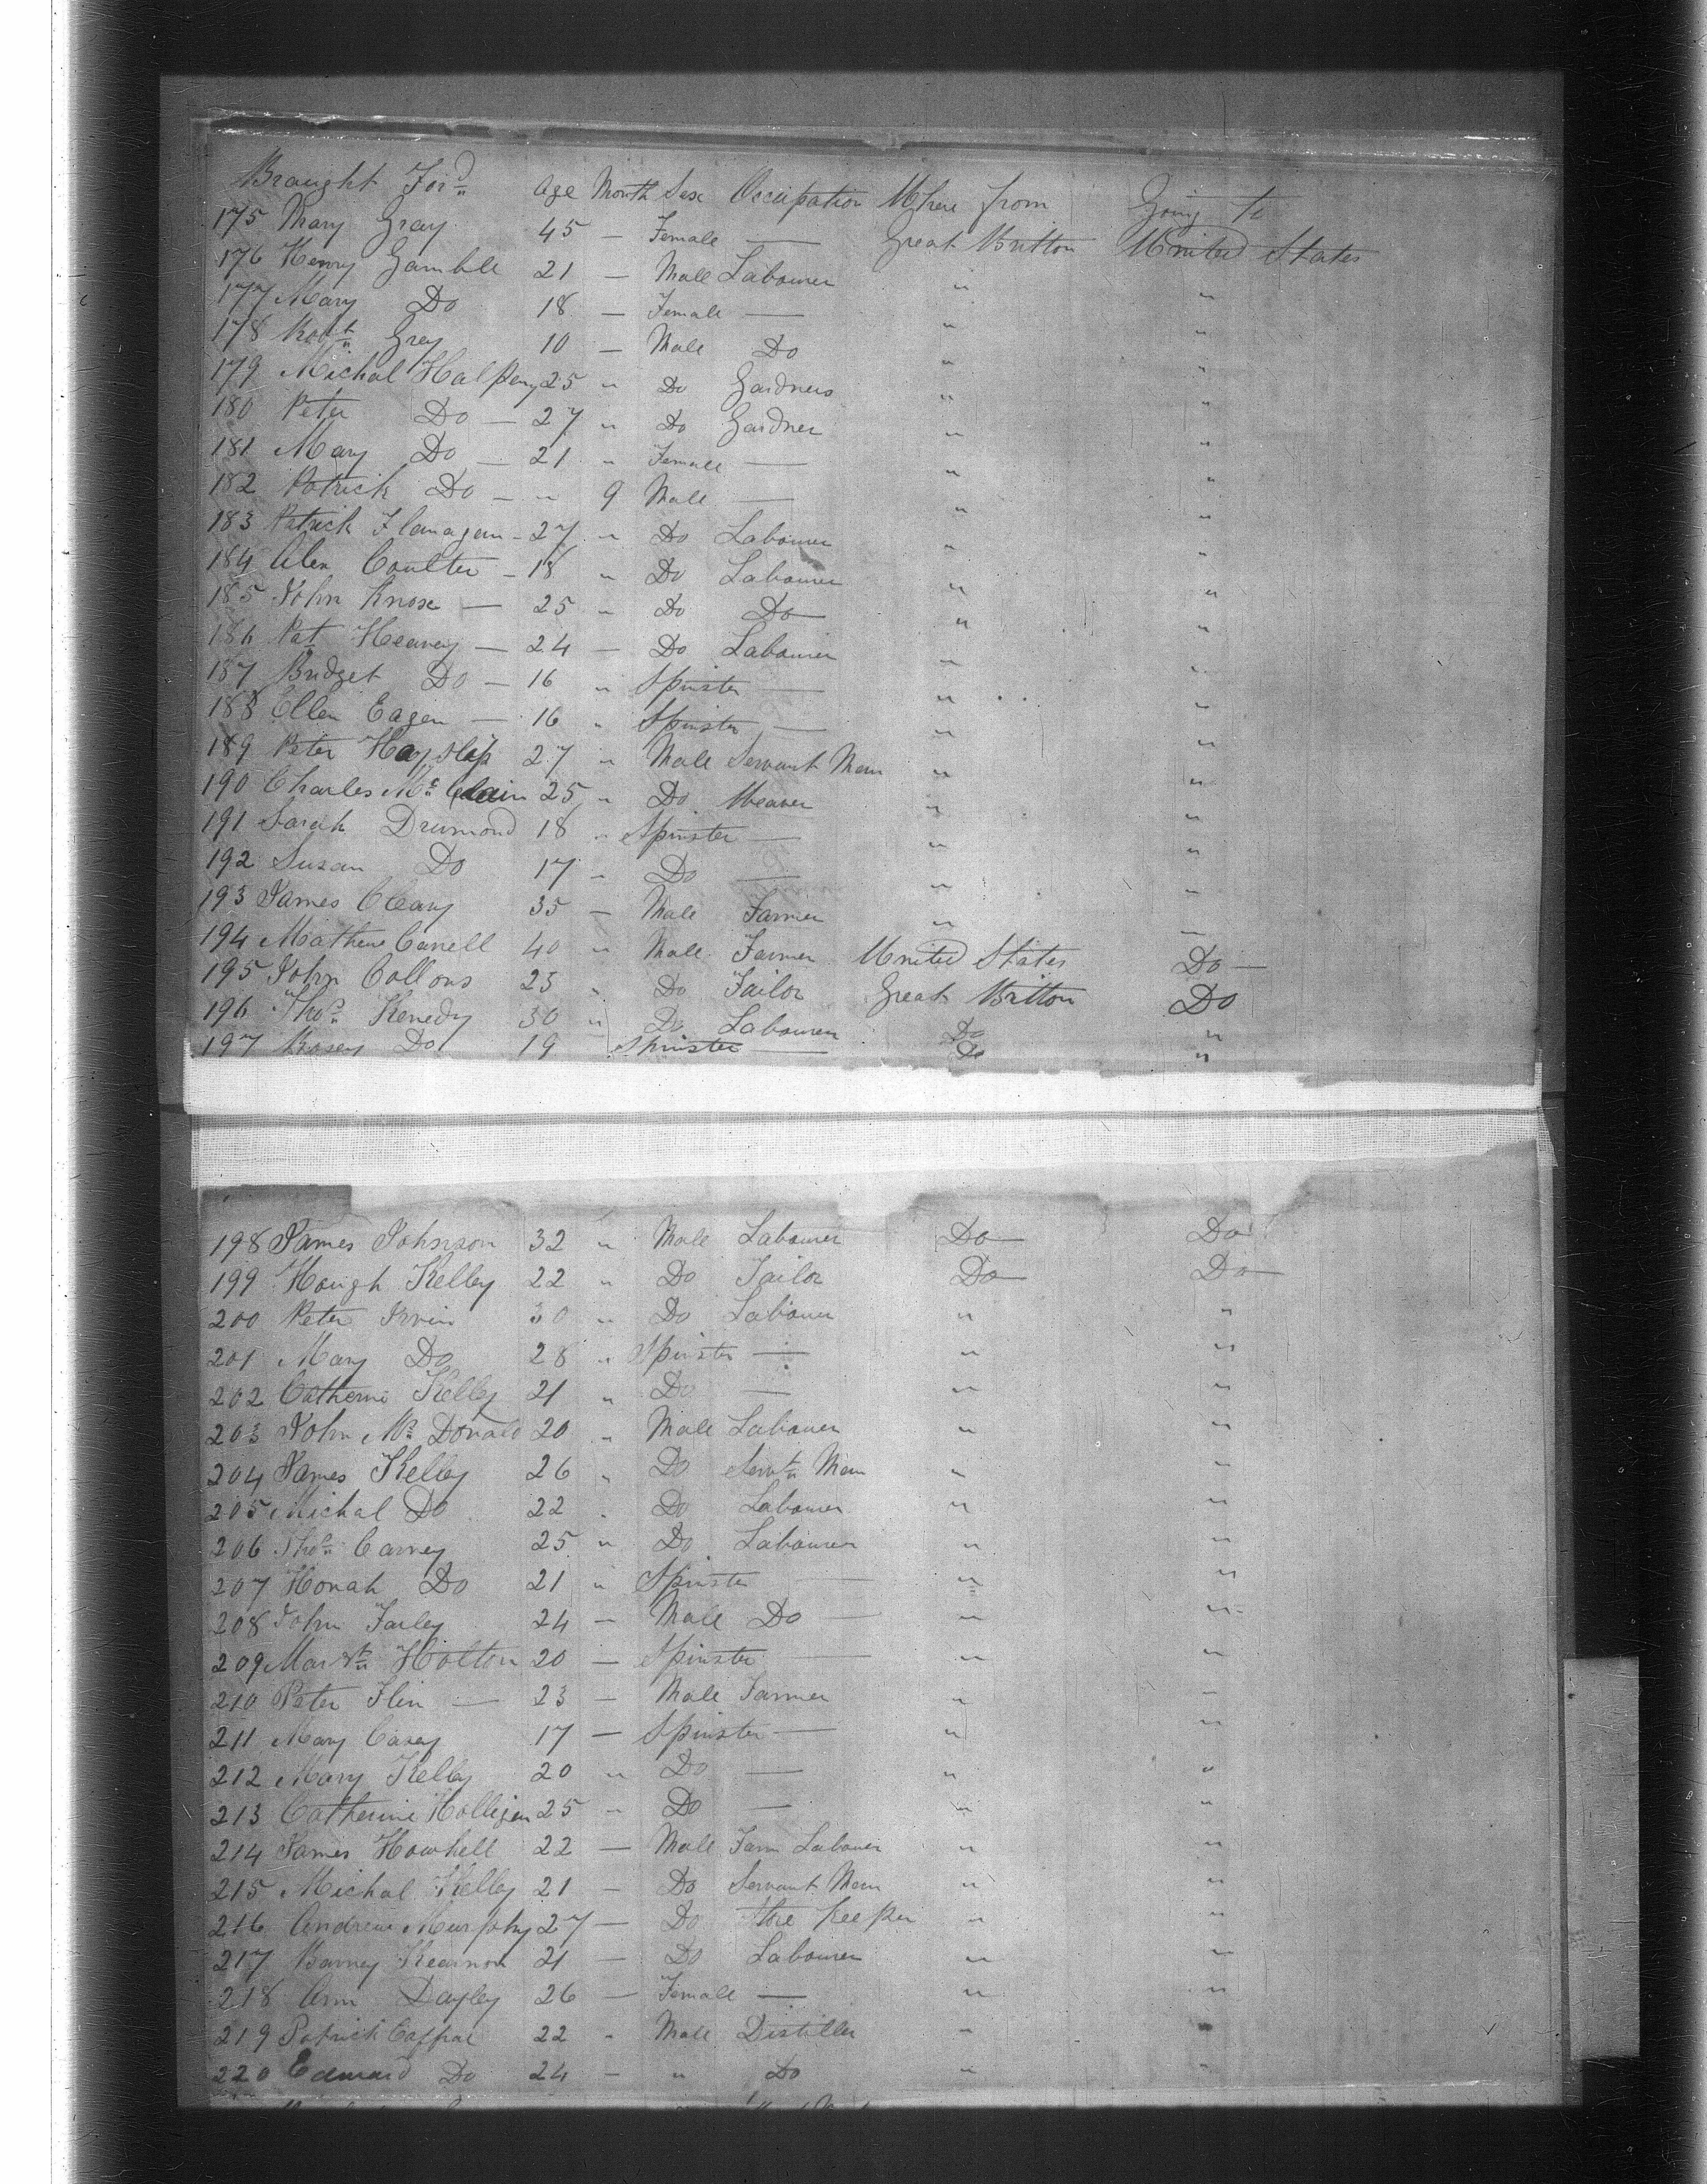 Braught Ford Age Month Sex Occupation Where from Going to
175 Mary Gray 45 — Female — Great Britton United States
176 Henry Gamble 21 — Male Labourer " "
177 Mary Do 18 — Female — " "
178 Robt Gray 10 — Male Do " "
179 Michal Halpeny 25 " Do Gardners " "
180 Peter Do — 27 " Do Gardner " "
181 Mary Do — 21 " Female — " "
182 Patrick Do — " 9 Male — " "
183 Patrick Flanagan - 27 " Do Labourer " "
184 Alex Coulter - 18 " Do Labourer " "
185 John Knox — 25 " Do Do — " "
186 Pat Heaney — 24 — Do Labourer " "
187 Bridget Do — 16 " Spinster — " "
188 Ellen Eagen — 16 " Spinster — " "
189 Peter 27 " Male Servant Man " "
190 Charles Mc Clain 25 " Do Weaver " "
191 Sarah Drumond 18 " Spinster — " "
192 Susan Do 17 " Do — " "
193 James Cleary 35 — Male Farmer " "
194 Mathew Carell 40 " Male Farmer United States Do —
195 John Collons 23 " Do Tailor Great Britton Do
196 Thos Kenedy 30 " Do Labourer Do "
197 Rosey Do 19 Spinster — Do "
198 James Johnson 32 " Male Labourer Do — Do
199 Hough Kelley 22 " Do Tailor Do — Do —
200 Peter Irvin 30 " Do Labourer " "
201 Mary Do 28 " Spinster — " "
202 Catherine Kelley 21 " Do — " "
203 John Mc Donald 20 " Male Labourer " "
204 James Kelley 26 " Do Servt Man " "
205 Michal Do 22 " Do Labourer " "
206 Thos Carney 25 " Do Labourer " "
207 Honah Do 21 " Spinster — " "
208 John Farley 24 — Male Do — " "
209 Margt Holton 20 — Spinster — " "
210 Peter Flin — 23 — Male Farmer " "
211 Mary Casey 17 — Spinster — " "
212 Mary Kelley 20 " Do — " "
213 Catherine Holligen 25 " Do — " "
214 James Howhell 22 — Male Farm Labourer " "
215 Michal Kelley 21 — Do Servant Man " "
216 Andrew Murphy 27 — Do Store Keeper " "
217 Barney Kearnon 21 — Do Labourer " "
218 Ann Dayley 26 — Female — " "
219 Patrick Caffrae 22 " Male Distiller " "
220 Edward Do 24 — " Do " "